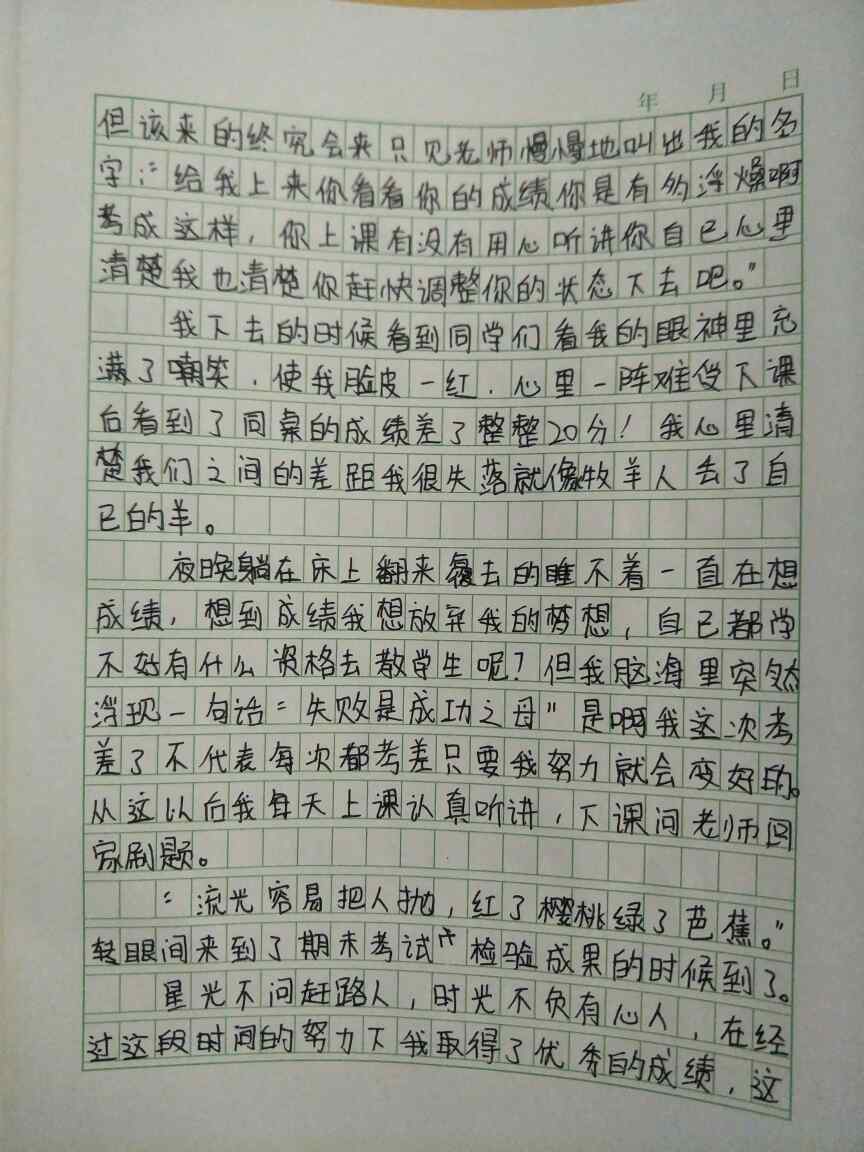 年 月 日
但该来的终究会来只见老师慢慢地叫出我的名
字:“给我上来你看看你的成绩你是有多浮燥啊
考成这样，你上课有没有用心听讲你自己心里
清楚我也清楚你赶快调整你的状态下去吧。”
我下去的时候看到同学们看我的眼神里充
满了嘲笑，使我脸皮一红，心里一阵难受下课
后看到了同桌的成绩差了整整20分！我心里清
楚我们之间的差距我很失落就像牧羊人丢了自
己的羊。
夜晚躺在床上翻来覆去的睡不着一直在想
成绩，想到成绩我想放弃我的梦想，自己都学
不好有什么资格去教学生呢？但我脑海里突然
浮现一句话“失败是成功之母”是啊我这次考
差了不代表每次都考差只要我努力就会变好的。
从这以后我每天上课认真听讲，下课问老师回
家刷题。
“流光容易把人抛，红了樱桃绿了芭蕉。”
转眼间来到了期末考试 检验成果的时候到了。
星光不问赶路人，时光不负有心人，在经
过这段时间的努力下我取得了优秀的成绩，这